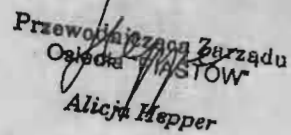 Przewodnicząca Zarządu
Osiedla "PIASTÓW"
Alicja Hepper